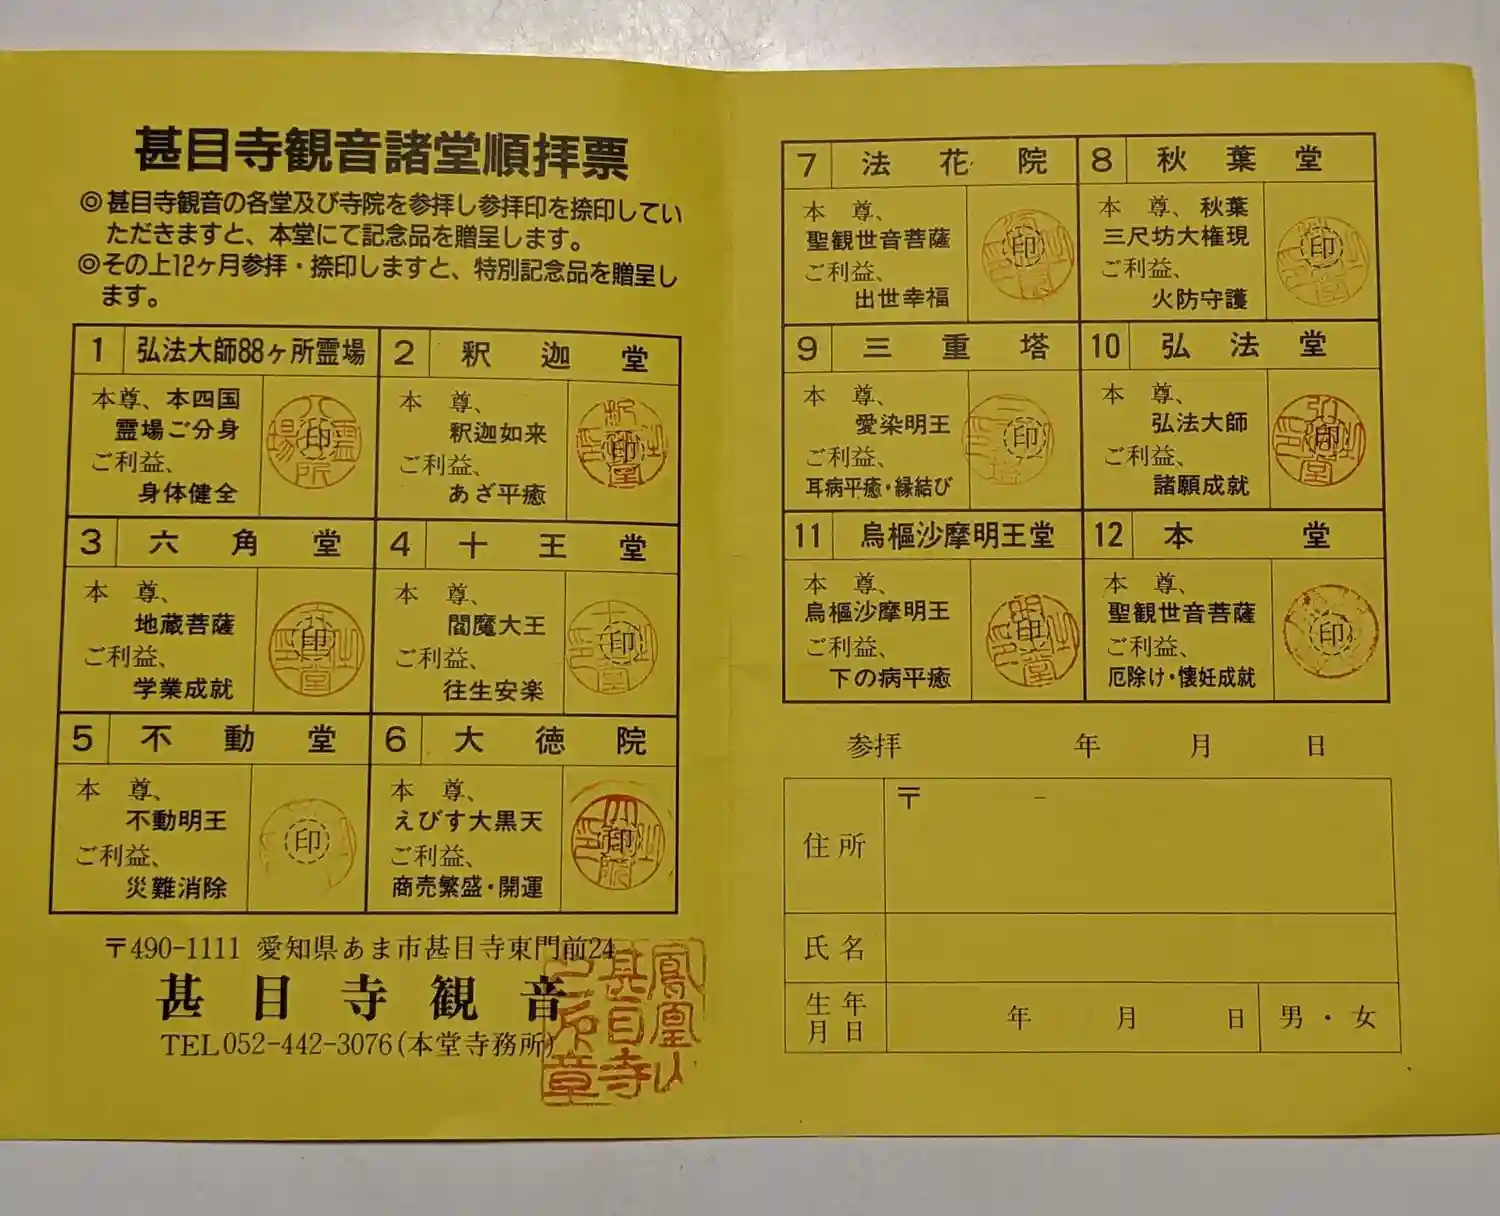 甚目寺観音諸堂順拝票
◎甚目寺観音の各堂及び寺院を参拝し参拝印を捺印してい
ただきますと、本堂にて記念品を贈呈します。
◎その上12ヶ月参拝・捺印しますと、特別記念品を贈呈し
ます。
1 弘法大師88ヶ所霊場
本尊、本四国
霊場ご分身
ご利益、
身体健全
印
2 釈迦堂
本尊、
釈迦如来
ご利益、
あざ平癒
印
3 六角堂
本尊、
地蔵菩薩
ご利益、
学業成就
印
4 十王堂
本尊、
閻魔大王
ご利益、
往生安楽
印
5 不動堂
本尊、
不動明王
ご利益、
災難消除
印
6 大徳院
本尊、
えびす大黒天
ご利益、
商売繁盛・開運
印
〒490-1111 愛知県あま市甚目寺東門前24
甚目寺観音
TEL052-442-3076(本堂寺務所)
鳳凰山
甚目寺
7 法花院
本尊、
聖観世音菩薩
ご利益、
出世幸福
印
8 秋葉堂
本尊、秋葉
三尺坊大権現
ご利益、
火防守護
印
9 三重塔
本尊、
愛染明王
ご利益、
耳病平癒・縁結び
印
10 弘法堂
本尊、
弘法大師
ご利益、
諸願成就
印
11 烏樞沙摩明王堂
本尊、
烏樞沙摩明王
ご利益、
下の病平癒
印
12 本堂
本尊、
聖観世音菩薩
ご利益、
厄除け・懐妊成就
印
参拝 年 月 日
住所 〒 -
氏名
生年月日 年 月 日 男・女